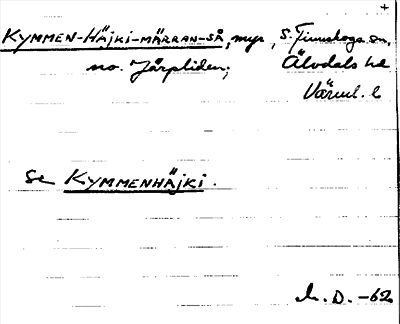 +
KYMMEN-HÄJKI-MÄRRAN-SÅ, myr, S. Finnskoga sn,
no. Järpliden; Älvdals hd
Värml. l
Se KYMMENHÄJKI.
L. D. -62